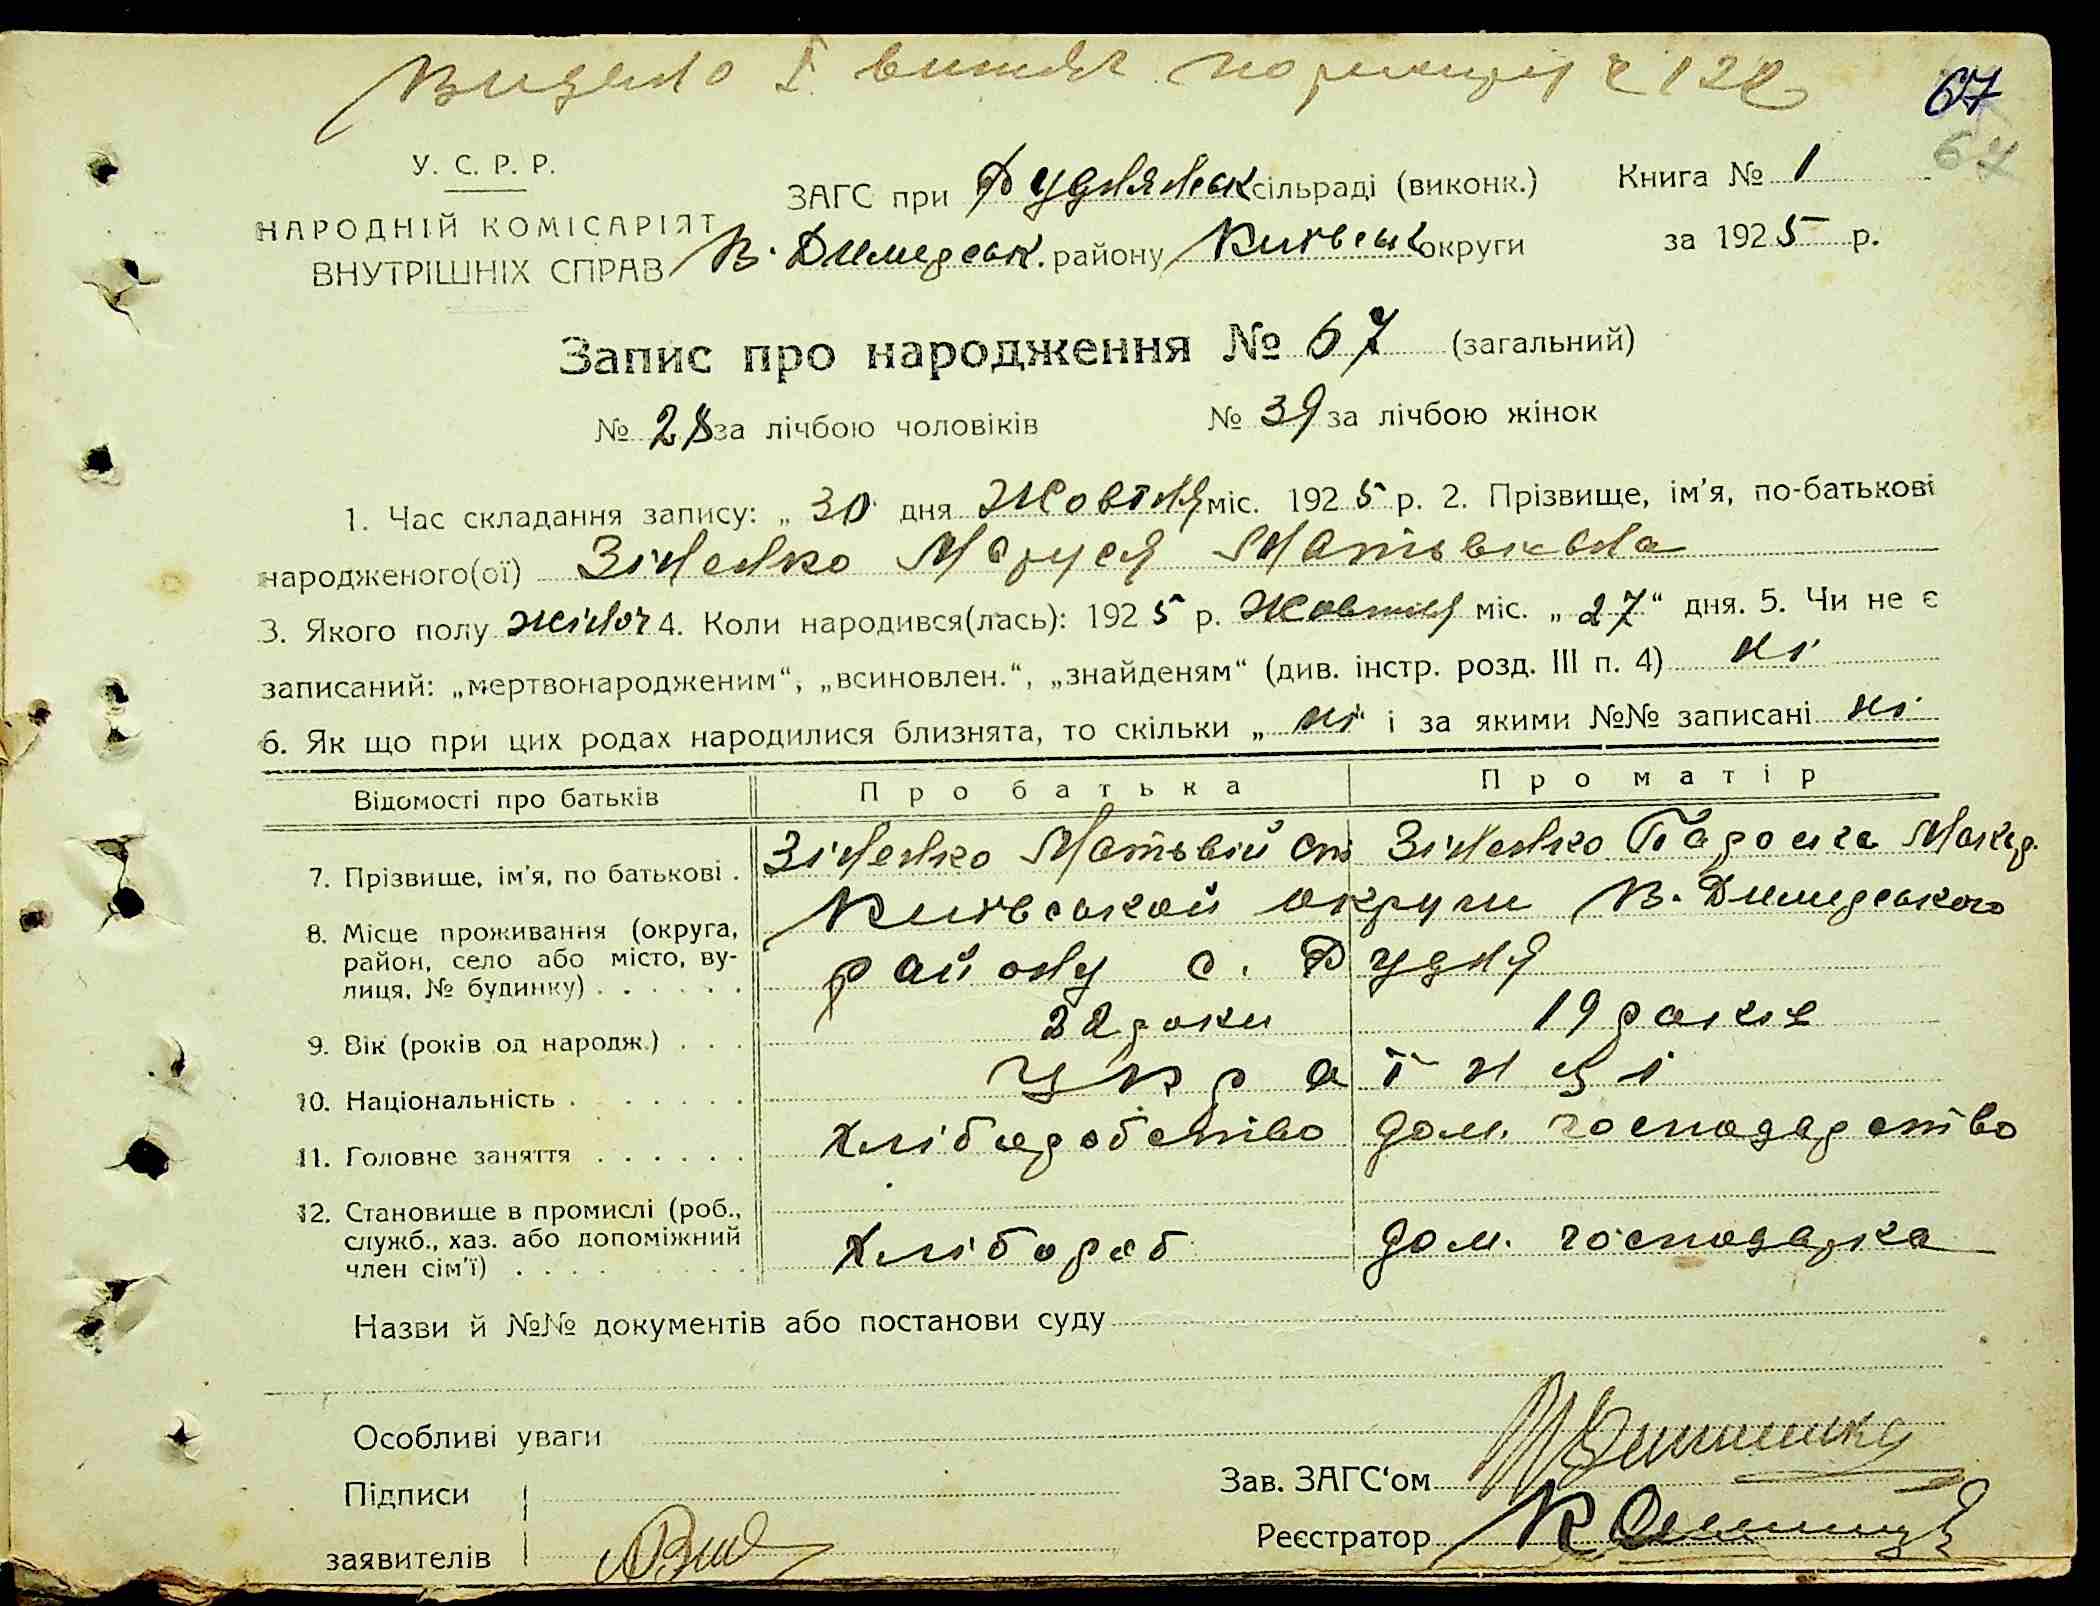 Видано I витяг по реєстрі № 122
67
67
У. С. Р. Р.
НАРОДНІЙ КОМІСАРІЯТ
ВНУТРІШНІХ СПРАВ
ЗАГС при Руднянськ сільраді (виконк.)
Книга № 1
В. Димерськ. району Київськ округи
за 1925 р.
Запис про народження № 67 (загальний)
№ 28 за лічбою чоловіків № 39 за лічбою жінок
1. Час складання запису: „ 30 дня Жовтня міс. 1925 р. 2. Прізвище, ім'я, по-батькові
народженого(ої) Зіненко Маруся Матьвієвна
3. Якого полу жіноч 4. Коли народився(лась): 1925 р. Жовтня міс. „ 27 “ дня. 5. Чи не є
записаний: „мертвонародженим“, „всиновлен.“, „знайденям“ (див. інстр. розд. III п. 4) ні
6. Як що при цих родах народилися близнята, то скільки „ ні “ і за якими №№ записані ні
Відомості про батьків Про батька Про матір
7. Прізвище, ім'я, по батькові . Зіненко Матьвій Зіненко Макар.
8. Місце проживання (округа, район, село або місто, вулиця, № будинку) . . . . . . Київськой округи В. Димерського
району с. Рудня
9. Вік (років од народж.) . . . 22 роки 19 років
10. Національність . . . . . . . Українці
11. Головне заняття . . . . . . хліборобство дом. господарство
12. Становище в промислі (роб.,
служб., хаз. або допоміжний
член сім'ї) . . . . . . . . . хлібороб дом. господарка
Назви й №№ документів або постанови суду
Особливі уваги
Підписи
заявителів
Зав. ЗАГС'ом
Реєстратор